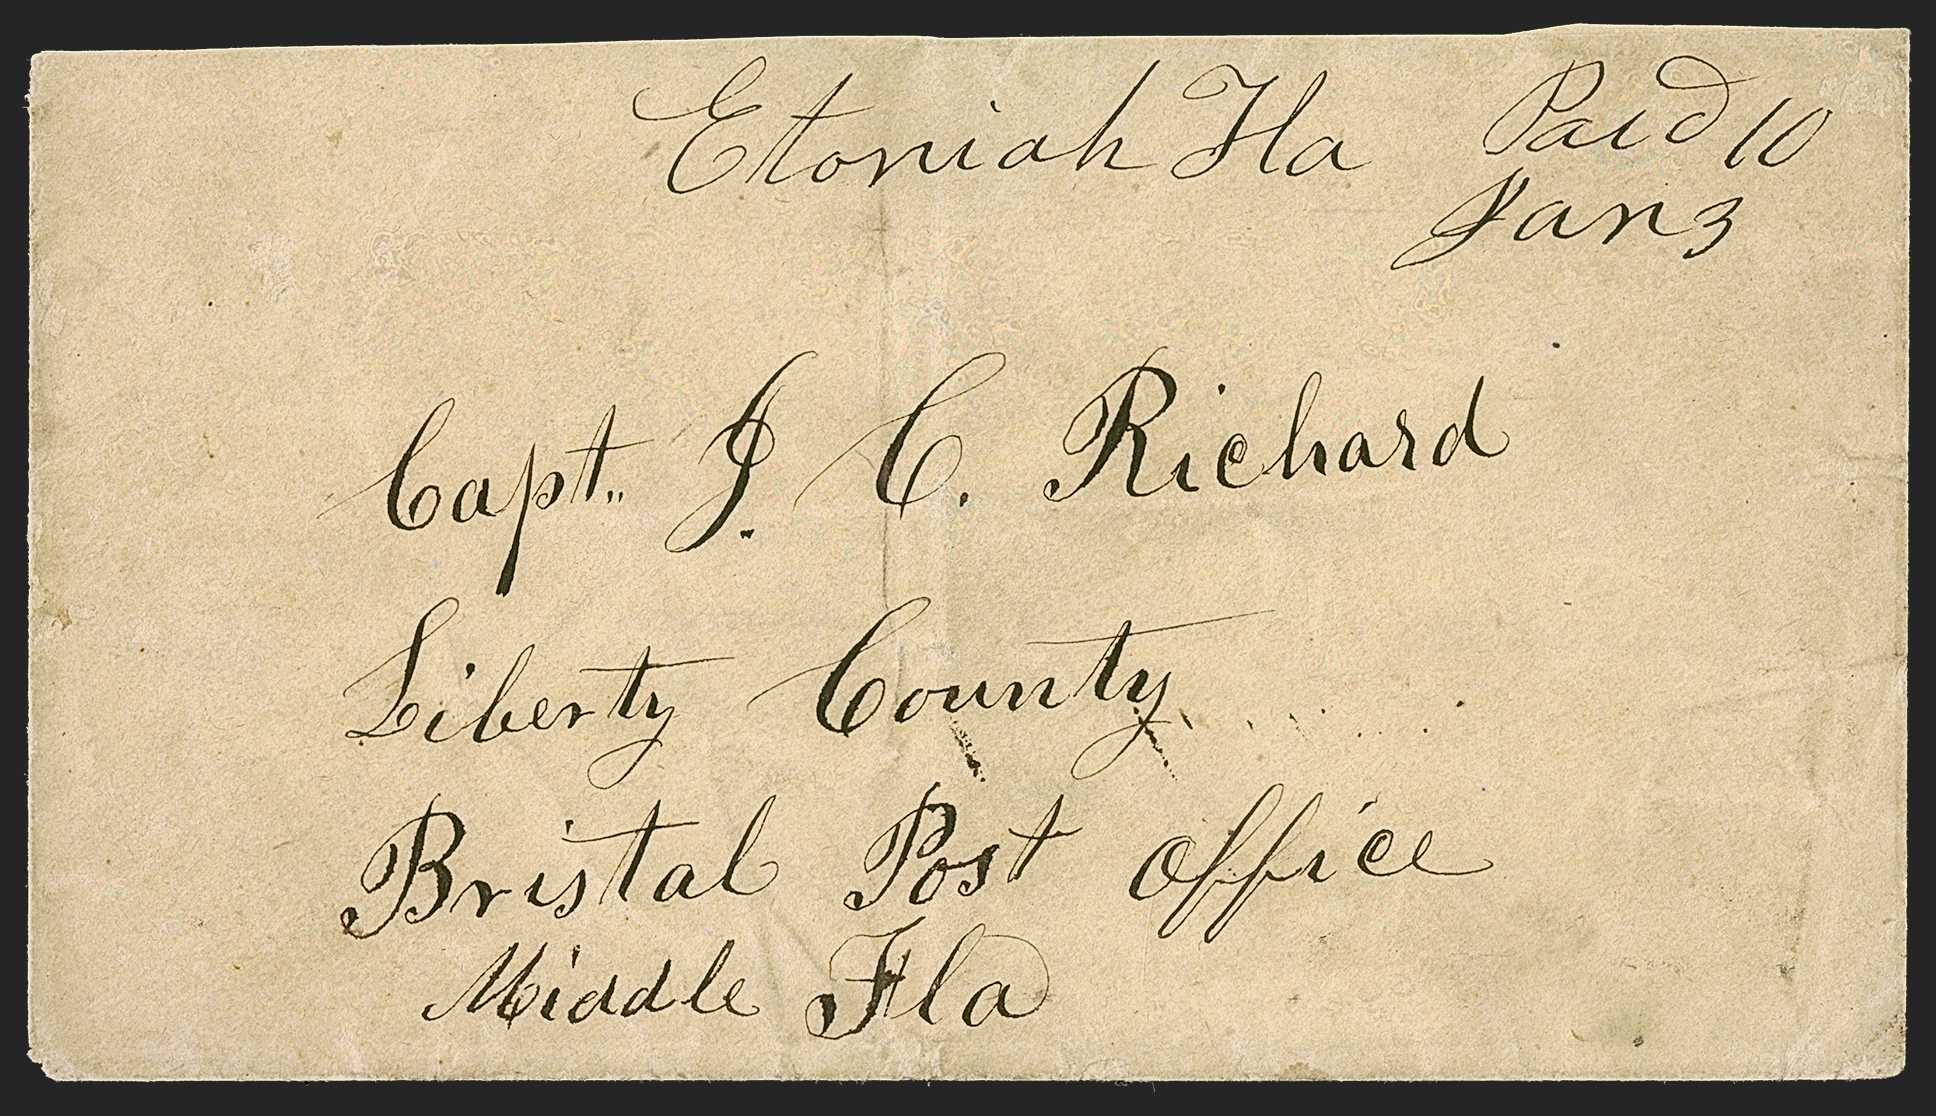 Etoniah Fla Paid 10
Jan 3
Capt. J. C. Richard
Liberty County
Bristal Post office
Middle Fla